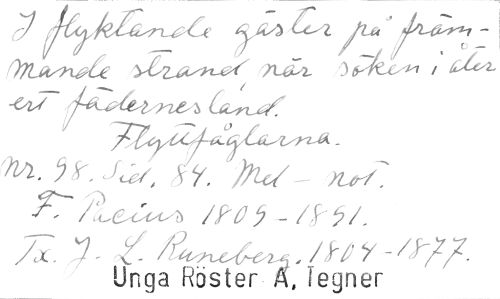 I flyktande gäster på främ-
mande strand, när söken i åter
ert fädernesland.
Flyttfåglarna.
Nr. 98. Sid. 84. Mel - not.
F. Pacius 1809-1891.
Tx. J. L. Runeberg. 1804-1877.
Unga Röster A, Tegner